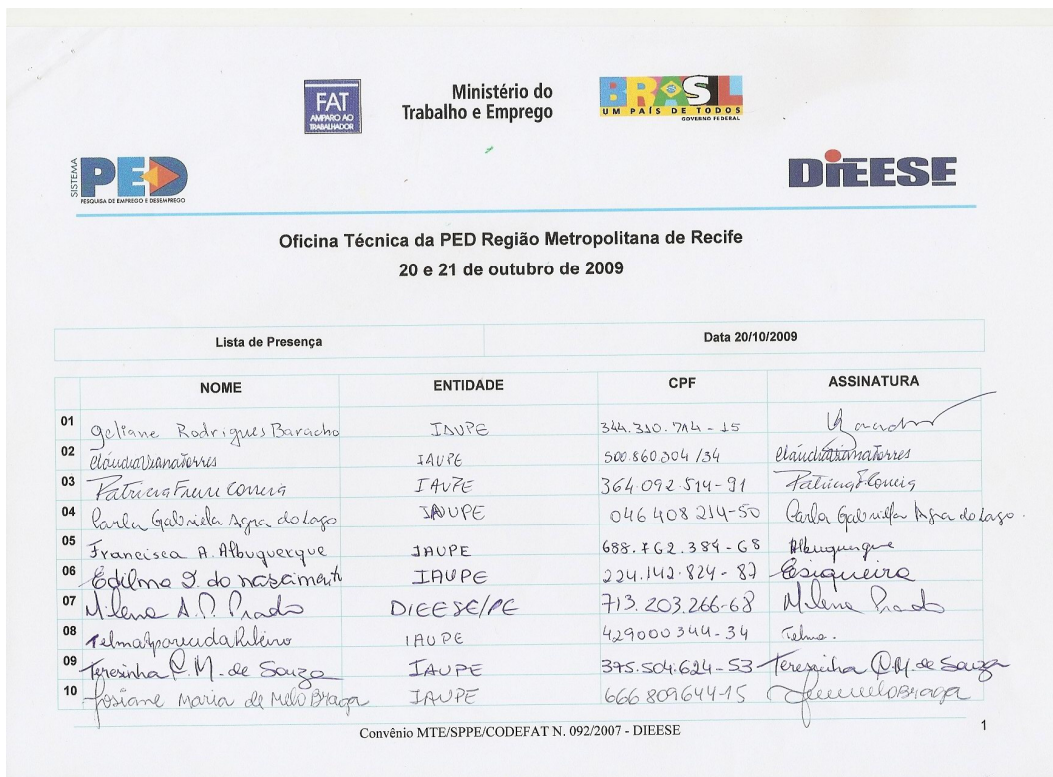 FAT
AMPARO AO
TRABALHADOR
Ministério do
Trabalho e Emprego
BRASIL
UM PAÍS DE TODOS
GOVERNO FEDERAL
SISTEMA
PED
PESQUISA DE EMPREGO E DESEMPREGO
DIEESE
Oficina Técnica da PED Região Metropolitana de Recife
20 e 21 de outubro de 2009
Lista de Presença Data 20/10/2009
NOME ENTIDADE CPF ASSINATURA
01 Geliane Rodrigues Baracho IAUPE 344.310.714-15
02 Cláudia Viana Torres IAUPE 500.860204/34 Cláudia Viana Torres
03 Patricia Freire Correia IAUPE 364.092.514-91
04 Carla Gabriela Agra do Lago IAUPE 046408214-50 Carla Gabriella Agra do Lago.
05 Francisca A. Albuquerque IAUPE 688.762.384-68 Albuquerque
06 Edilma S. do nascimento IAUPE 224.142.824-87 Esiqueira
07 Milena A.P. Prado DIEESE/PE 713.203.266-68 Milena Prado
08 Telma Aparecida Ribeiro IAUPE 429000344-34 Telma.
09 Teresinha P. M. de Souza IAUPE 375.504.624-53 Teresinha P. M. de Souza
10 Josiane Maria de Melo Braga IAUPE 666809644-15 Braga
Convênio MTE/SPPE/CODEFAT N. 092/2007 - DIEESE 1